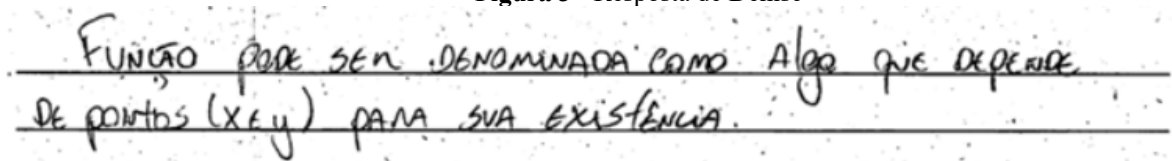 FUNÇÃO PODE SER DENOMINADA COMO Algo QUE DEPENDE
DE pontos (X E y) PARA SUA EXISTÊNCIA.